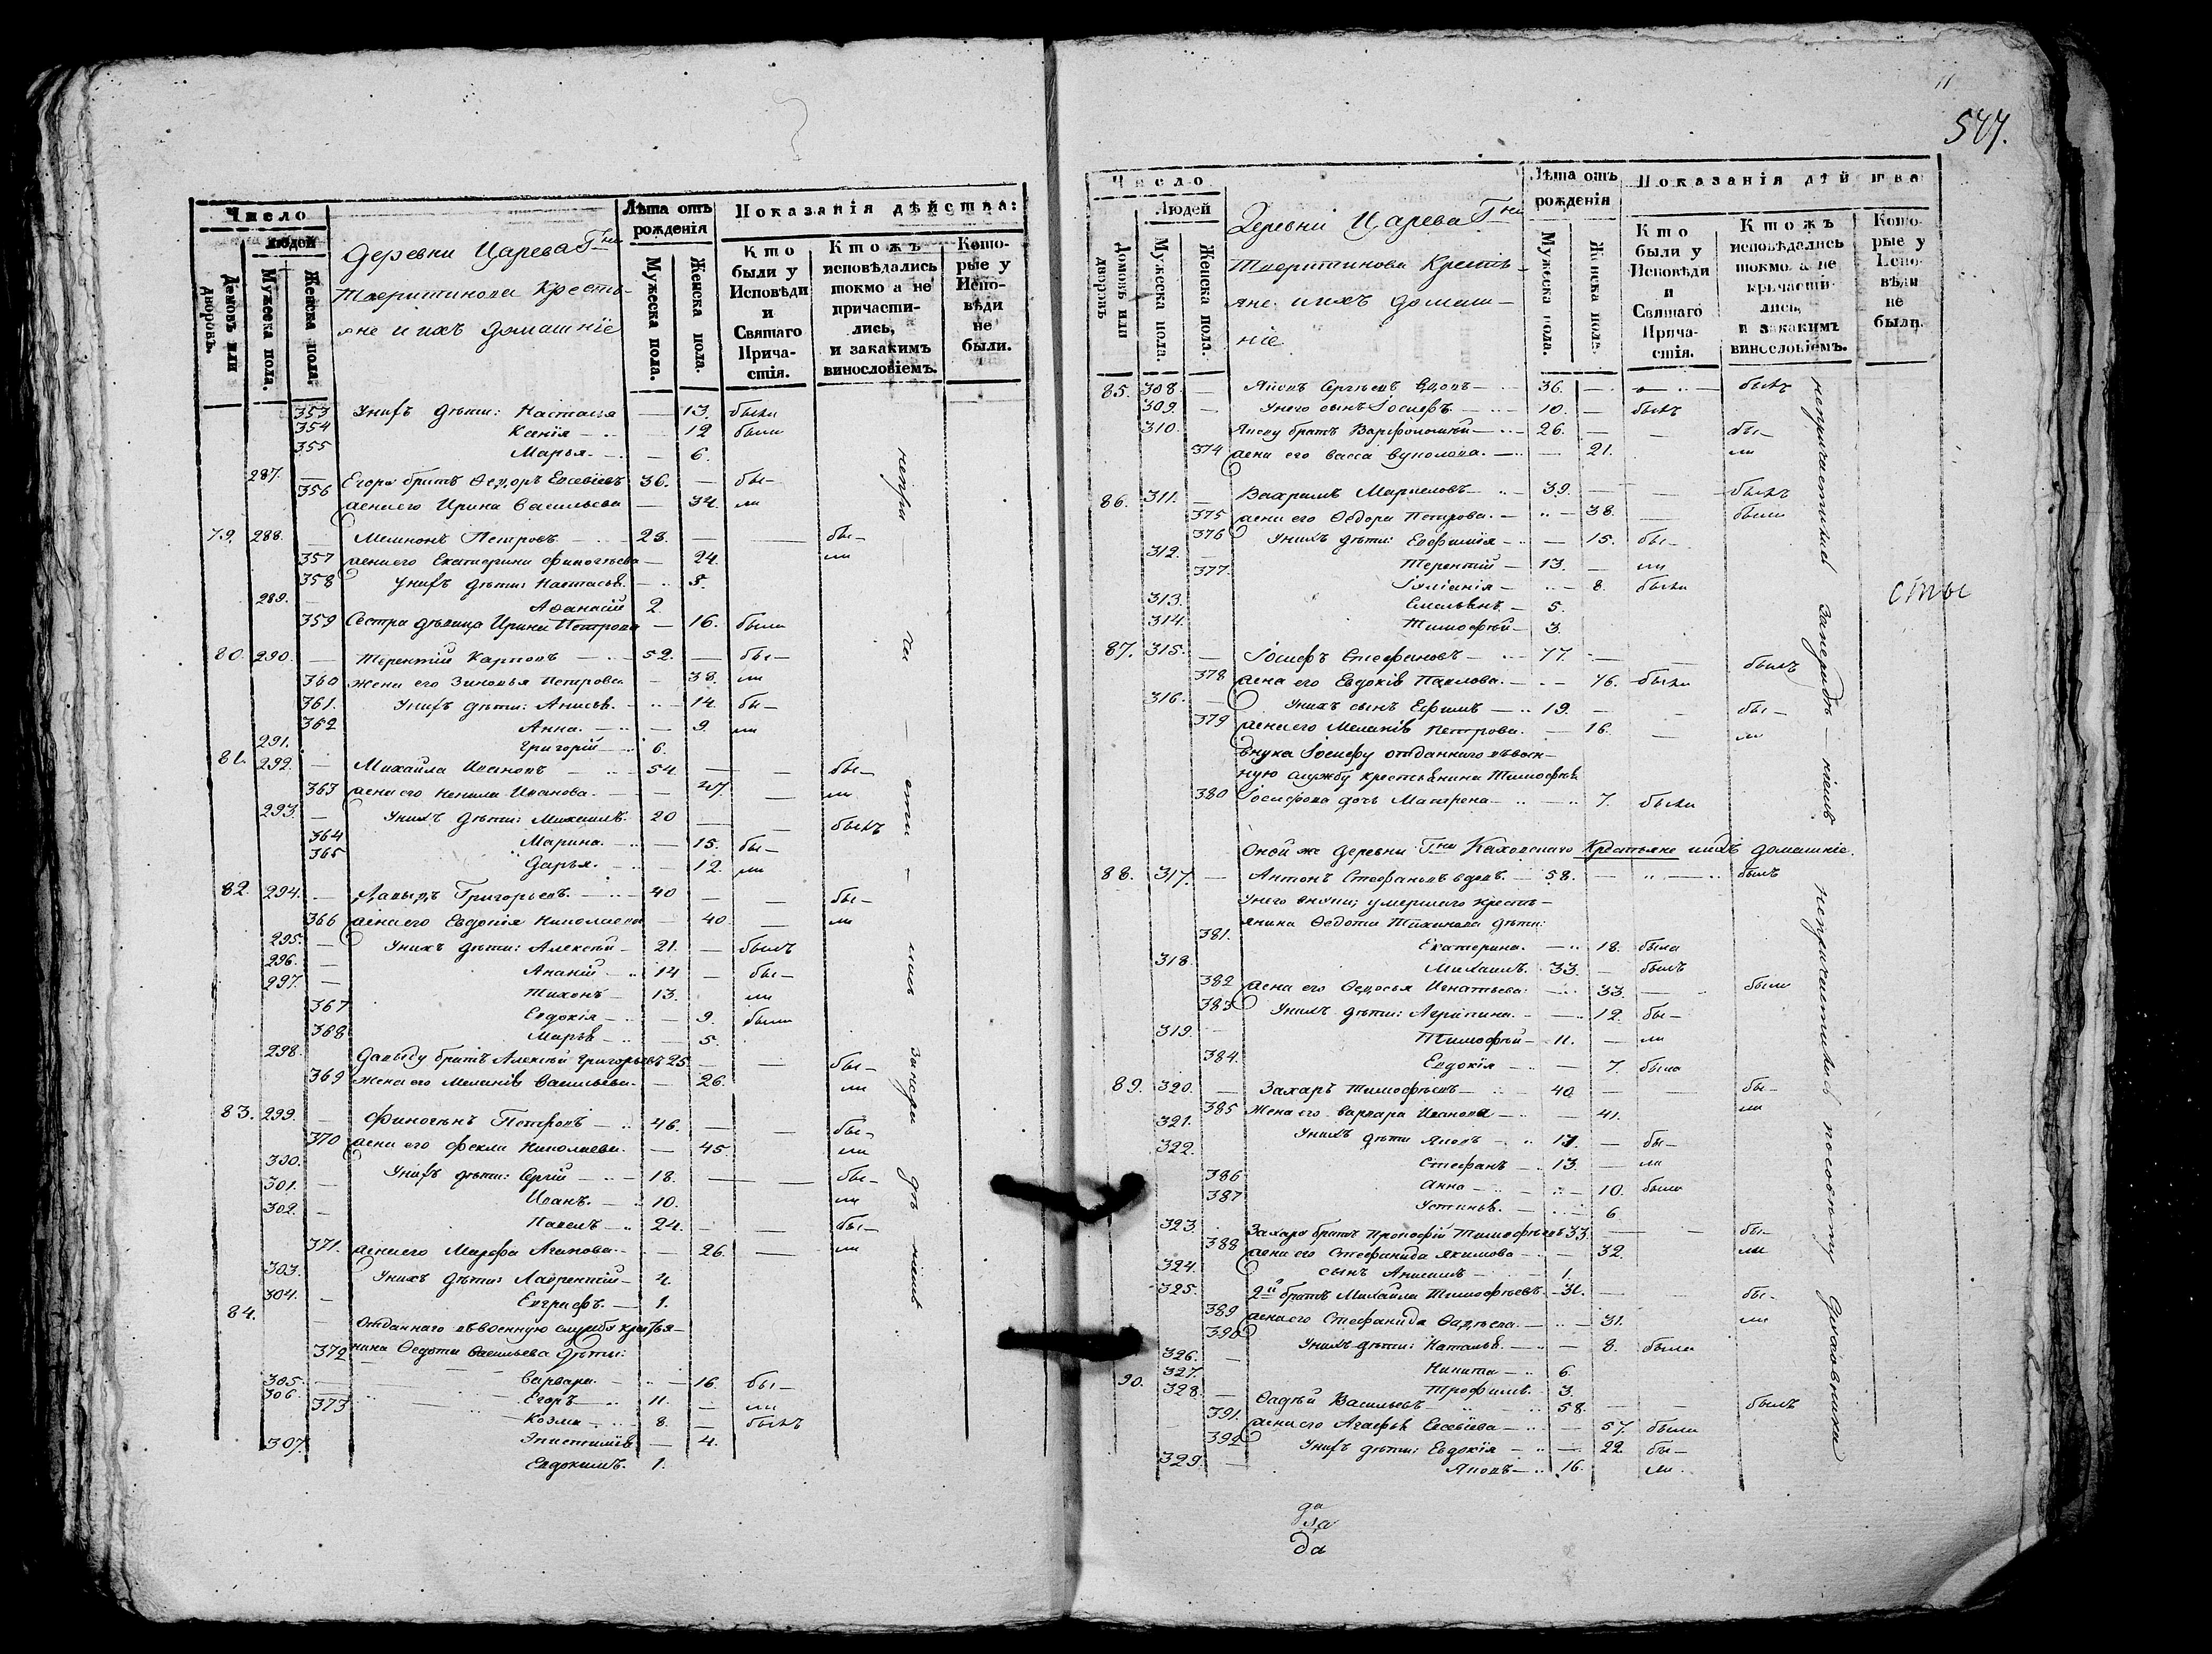 Число
людей
Домовъ или дворовъ.
Мужеска пола.
Женска пола.
Деревни Царева Гна
Тверитинова Кресть-
яне и ихъ домашніе
Лѣта отъ рожденія
Мужеска пола.
Женска пола.
Показанія дѣйства:
Кто были у Исповѣди и Святаго Прича-стія.
Ктожъ исповѣдались токмо а не причасти-лись, и закакимъ винословіемъ.
Кото-рые у Испо-вѣди не были.
353 Унихъ дѣти: Настасія — 13. были
354 Ксенія — 12 были
355 Марья. — 6.
287. — Егора братъ Ѳедоръ Евсевіевъ 36. — бы-
356 жена его Ирина Васильева — 34. ли
79. 288. Мемнонъ Петровъ — 23. — бы-
357 жена его Екатерина Финогѣева — 24. ли
358 Унихъ дѣти: Настасья. — 5.
289. Аѳанасій 2.
359 Сестра дѣвица Ирина Петрова — 16. была
80. 290. — Терентій Карповъ — 52. — бы-
360 Жена его Зиновья Петрова — 38. ли
361. Унихъ дѣти: Анисья. — 14. бы-
362 Анна. — 9. ли
291. Григорій — 6.
81. 292. — Михайла Ивановъ — 54 — бы-
363 жена его Ненила Иванова. — 47. ли
293. — Унихъ дѣти: Михаилъ. 20 — былъ
364 Марина. — 15. бы-
365 Дарья. — 12. ли
82. 294. — Давыдъ Григорьевъ. — 40 — бы-
366 жена его Евдокія Николаева — 40. ли
295. — Унихъ дѣти: Алексѣй — 21. — былъ
296. — Ананій — 14 — бы-
297. — Тихонъ — 13. ли
367 Евдокія — 9. была
368 Марья — 5.
298. Давыду братъ Алексѣй Григорьевъ 25. — бы-
369 Жена его Меланія Васильева. — 26. ли
83. 299. — Финогѣнъ Петровъ — 46. — бы-
370 жена его Фекла Николаева. — 45. ли
300. Унихъ дѣти: Сергій — 18. — бы-
301. — Иванъ. — 10. ли
302. — Павелъ — 24. — бы-
371. жена его Марфа Агапова. — 26. — ли
303. Унихъ дѣти: Лаврентій — 4.
304. — Евграфъ. — 1.
84. — Отданнаго въ военную службу крестья-
нина Ѳедота Васильева дѣти:
372 Варвара. — 16. бы-
305. Егоръ — 11. ли
306. Козма — 8. — былъ
373 Эпистимія — 4.
307. Евдокимъ. 1.
непри ча — сти — лись занера дѣ ніемъ
11
547.
Число
Людей
Домовъ или дворовъ
Мужеска пола.
Женска пола.
Деревни Царева Гна
Тверитинова Кресть-
яне и ихъ домаш-
ніе.
Лѣта отъ рожденія
Мужеска пола.
Женска пола.
Показанія дѣйства
Кто были у Исповѣди и Святаго Прича-стія.
Ктожъ исповѣдались токмо а не причасти-лись, и закакимъ винословіемъ.
Кото-рые у Испо-вѣди не были.
85. 308. — Яковъ Сергѣевъ вдовъ — 36. — былъ
309. — Унего сынъ Іосифъ. — 10. — былъ
310. Якову братъ Варфоломѣй — 26. — бы-
374 жена его Васса Вуколова. — 21. ли
86. 311. — Вахрамъ Маркеловъ — 39. — былъ
375 жена его Ѳедора Петрова. — 38. — были
376 Унихъ дѣти: Евфимія — 15. бы-
312. — Терентій — 13. — ли
377. Іуліанія — 8. была
313. Емельянъ. — 5.
314. Тимофѣй — 3.
87. 315. — Іосифъ Стефановъ — 77. — былъ
378 жена его Евдокія Павлова. — 76. была
316. — Унихъ сынъ Ефимъ — 19. — бы-
379 жена его Меланія Петрова. — 16. — ли
внука Іосифу отданнаго въ воен-
ную службу крестьянина Тимофея
380 Іосифова дочь Матрена — 7. была
Оной же деревни Гна Каховскаго Крестьяне и ихъ домашніе.
88. 317. — Антонъ Стефановъ вдовъ. — 58. — былъ
Унего внуки; умершаго кресть-
янина Ѳедота Тихинова дѣти:
381. Екатерина. — 18. была
318. Михаилъ. 33. — былъ
382 жена его Ѳедосья Игнатьева — 33. — были
383 Унихъ дѣти: Агрипина. — 12. бы-
319. — Тимофѣй — 11. — ли
384. Евдокія — 7. была
89. 320. — Захаръ Тимофѣевъ — 40 — бы-
385 Жена его Варвара Иванова — 41. ли
321. Унихъ дѣти Яковъ — 17. — бы-
322. Стефанъ — 13. — ли
386 Анна — 10. была
387 Устинья. — 6
323. Захара братъ Прокофій Тимофѣевъ 33. — бы-
388 жена его Стефанида Якимова — 32. ли
324. сынъ Анисимъ — 1.
325. 2й братъ Михайла Тимофѣевъ — 31. — бы-
389 жена его Стефанида Ѳадѣева. — 31. ли
390 Унихъ дѣти: Наталья. — 8. была
326. — Никита — 6.
327. Трофимъ. 3.
90. 328. — Ѳадѣй Васильевъ — 58. — былъ
391. жена его Агафья Евсевіева — 57. была
392 Унихъ дѣти: Евдокія — 22. бы-
329. — Яковъ — 16. ли
непричастились занерадѣ — ніемъ
непричастились посовѣту духовника
сты
да
да